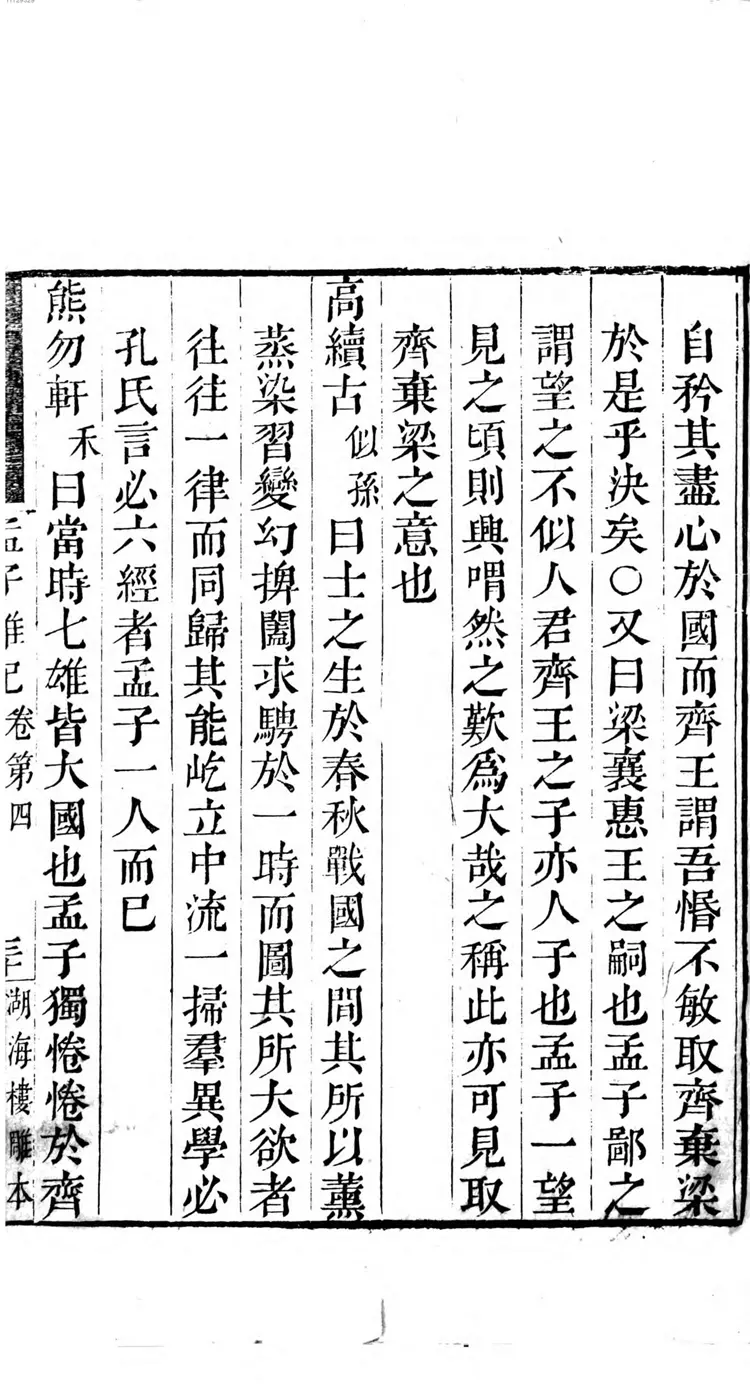 自矜其盡心於國而齊王謂吾惽不敏取齊棄梁
於是乎決矣○又曰梁襄惠王之嗣也孟子鄙之
謂望之不似人君齊王之子亦人子也孟子一望
見之頃則興喟然之歎爲大哉之稱此亦可見取
齊棄梁之意也
高續古似孫曰士之生於春秋戰國之間其所以薰
蒸染習變幻捭闔求騁於一時而圖其所大欲者
往往一律而同歸其能屹立中流一掃羣異學必
孔氏言必六經者孟子一人而已
熊勿軒禾曰當時七雄皆大國也孟子獨惓惓於齊
孟子雜記卷第四 湖海樓雕本